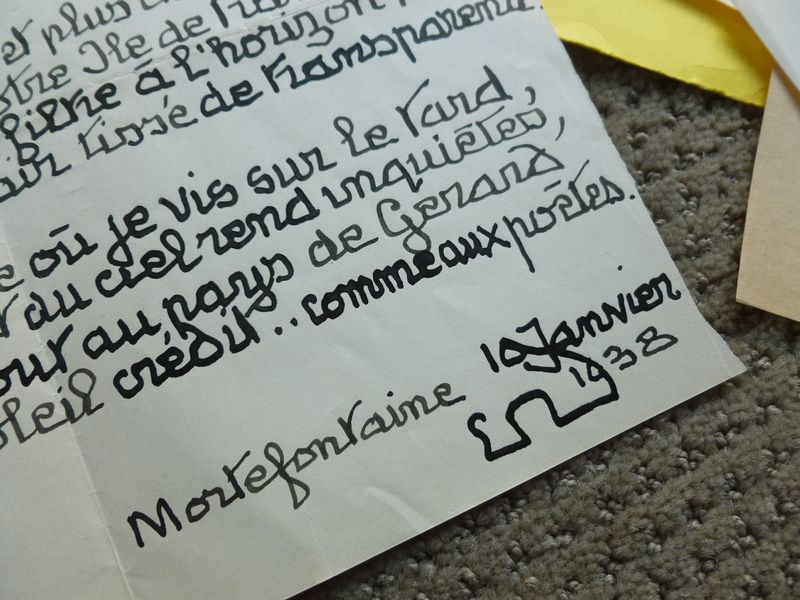 et plus
Ile de
filtre à l'horizon
tissé de transparent
où je vis sur le tard,
au ciel rend inquiétés,
au pays de Gérard,
crédit.. comme aux poètes.
Mortefontaine 10 Janvier
1938